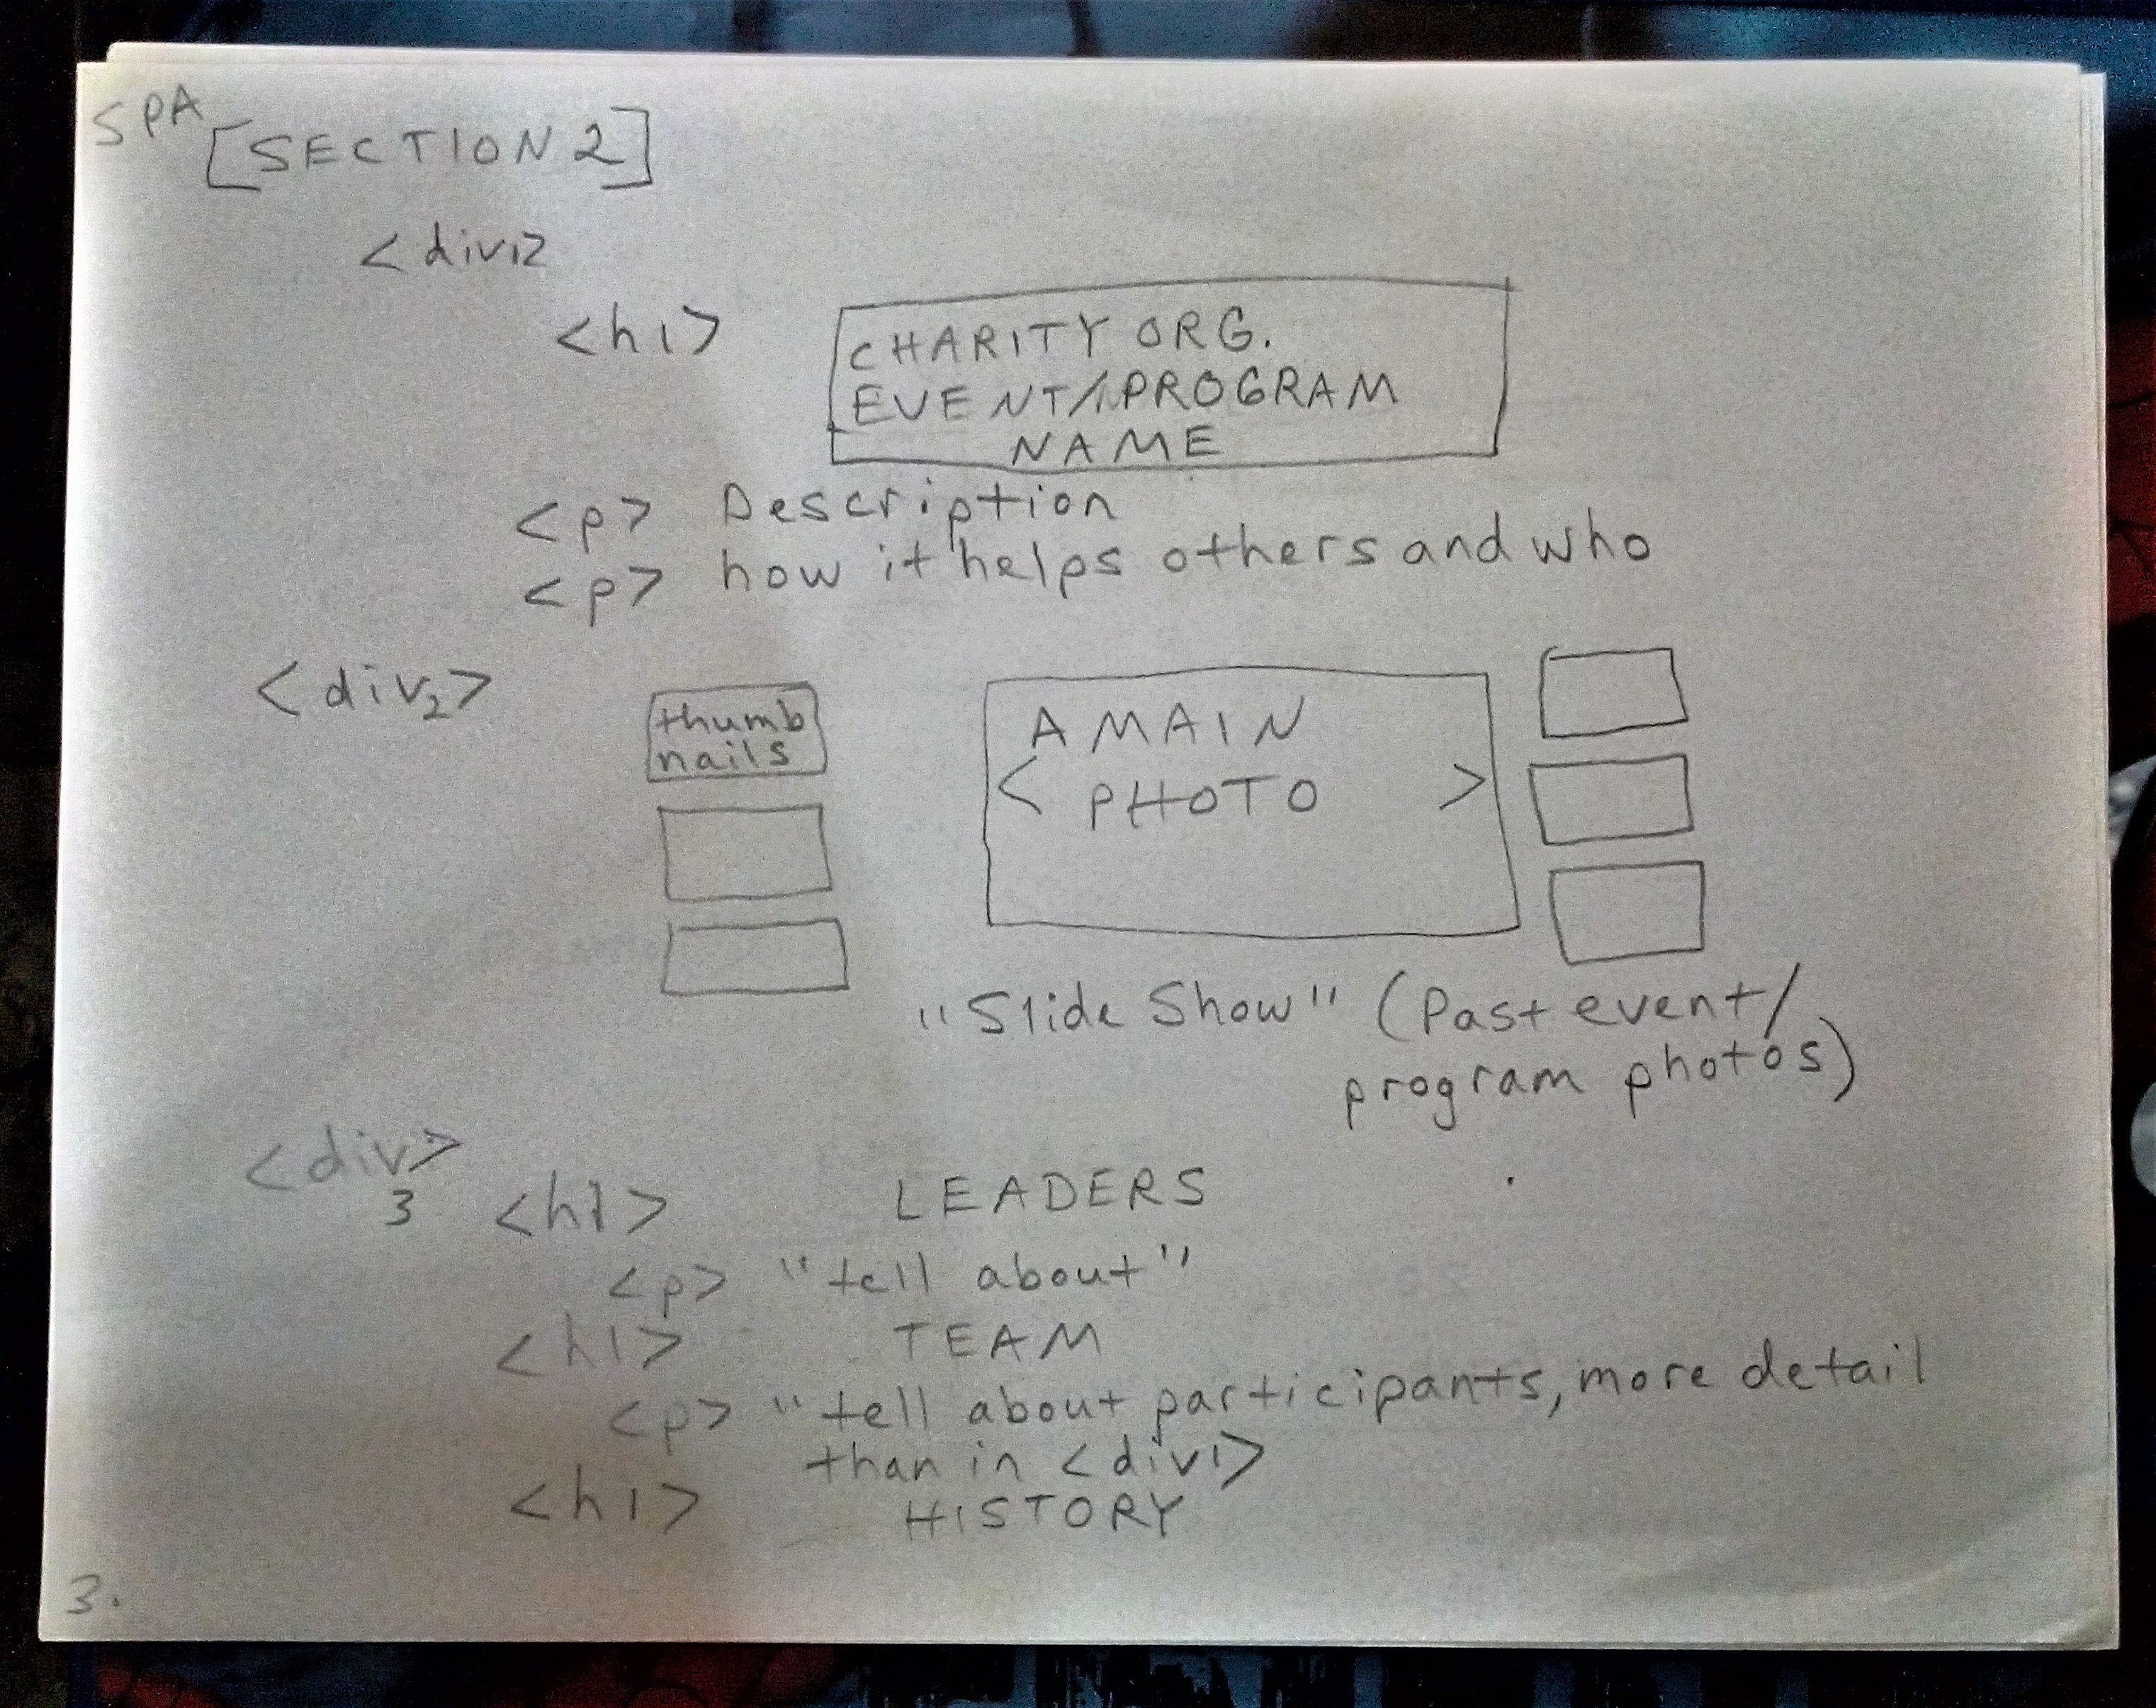 SPA
[SECTION 2]
<div1>
<h1>
CHARITY ORG.
EVENT/PROGRAM
NAME
<p> Description
<p> how it helps others and who
<div2>
thumb
nails
A MAIN
< PHOTO >
"Slide Show" (Past event/
program photos)
<div>
3
<h1> LEADERS
<p> "tell about"
<h1> TEAM
<p> "tell about participants, more detail
than in <div1>
<h1> HISTORY
3.